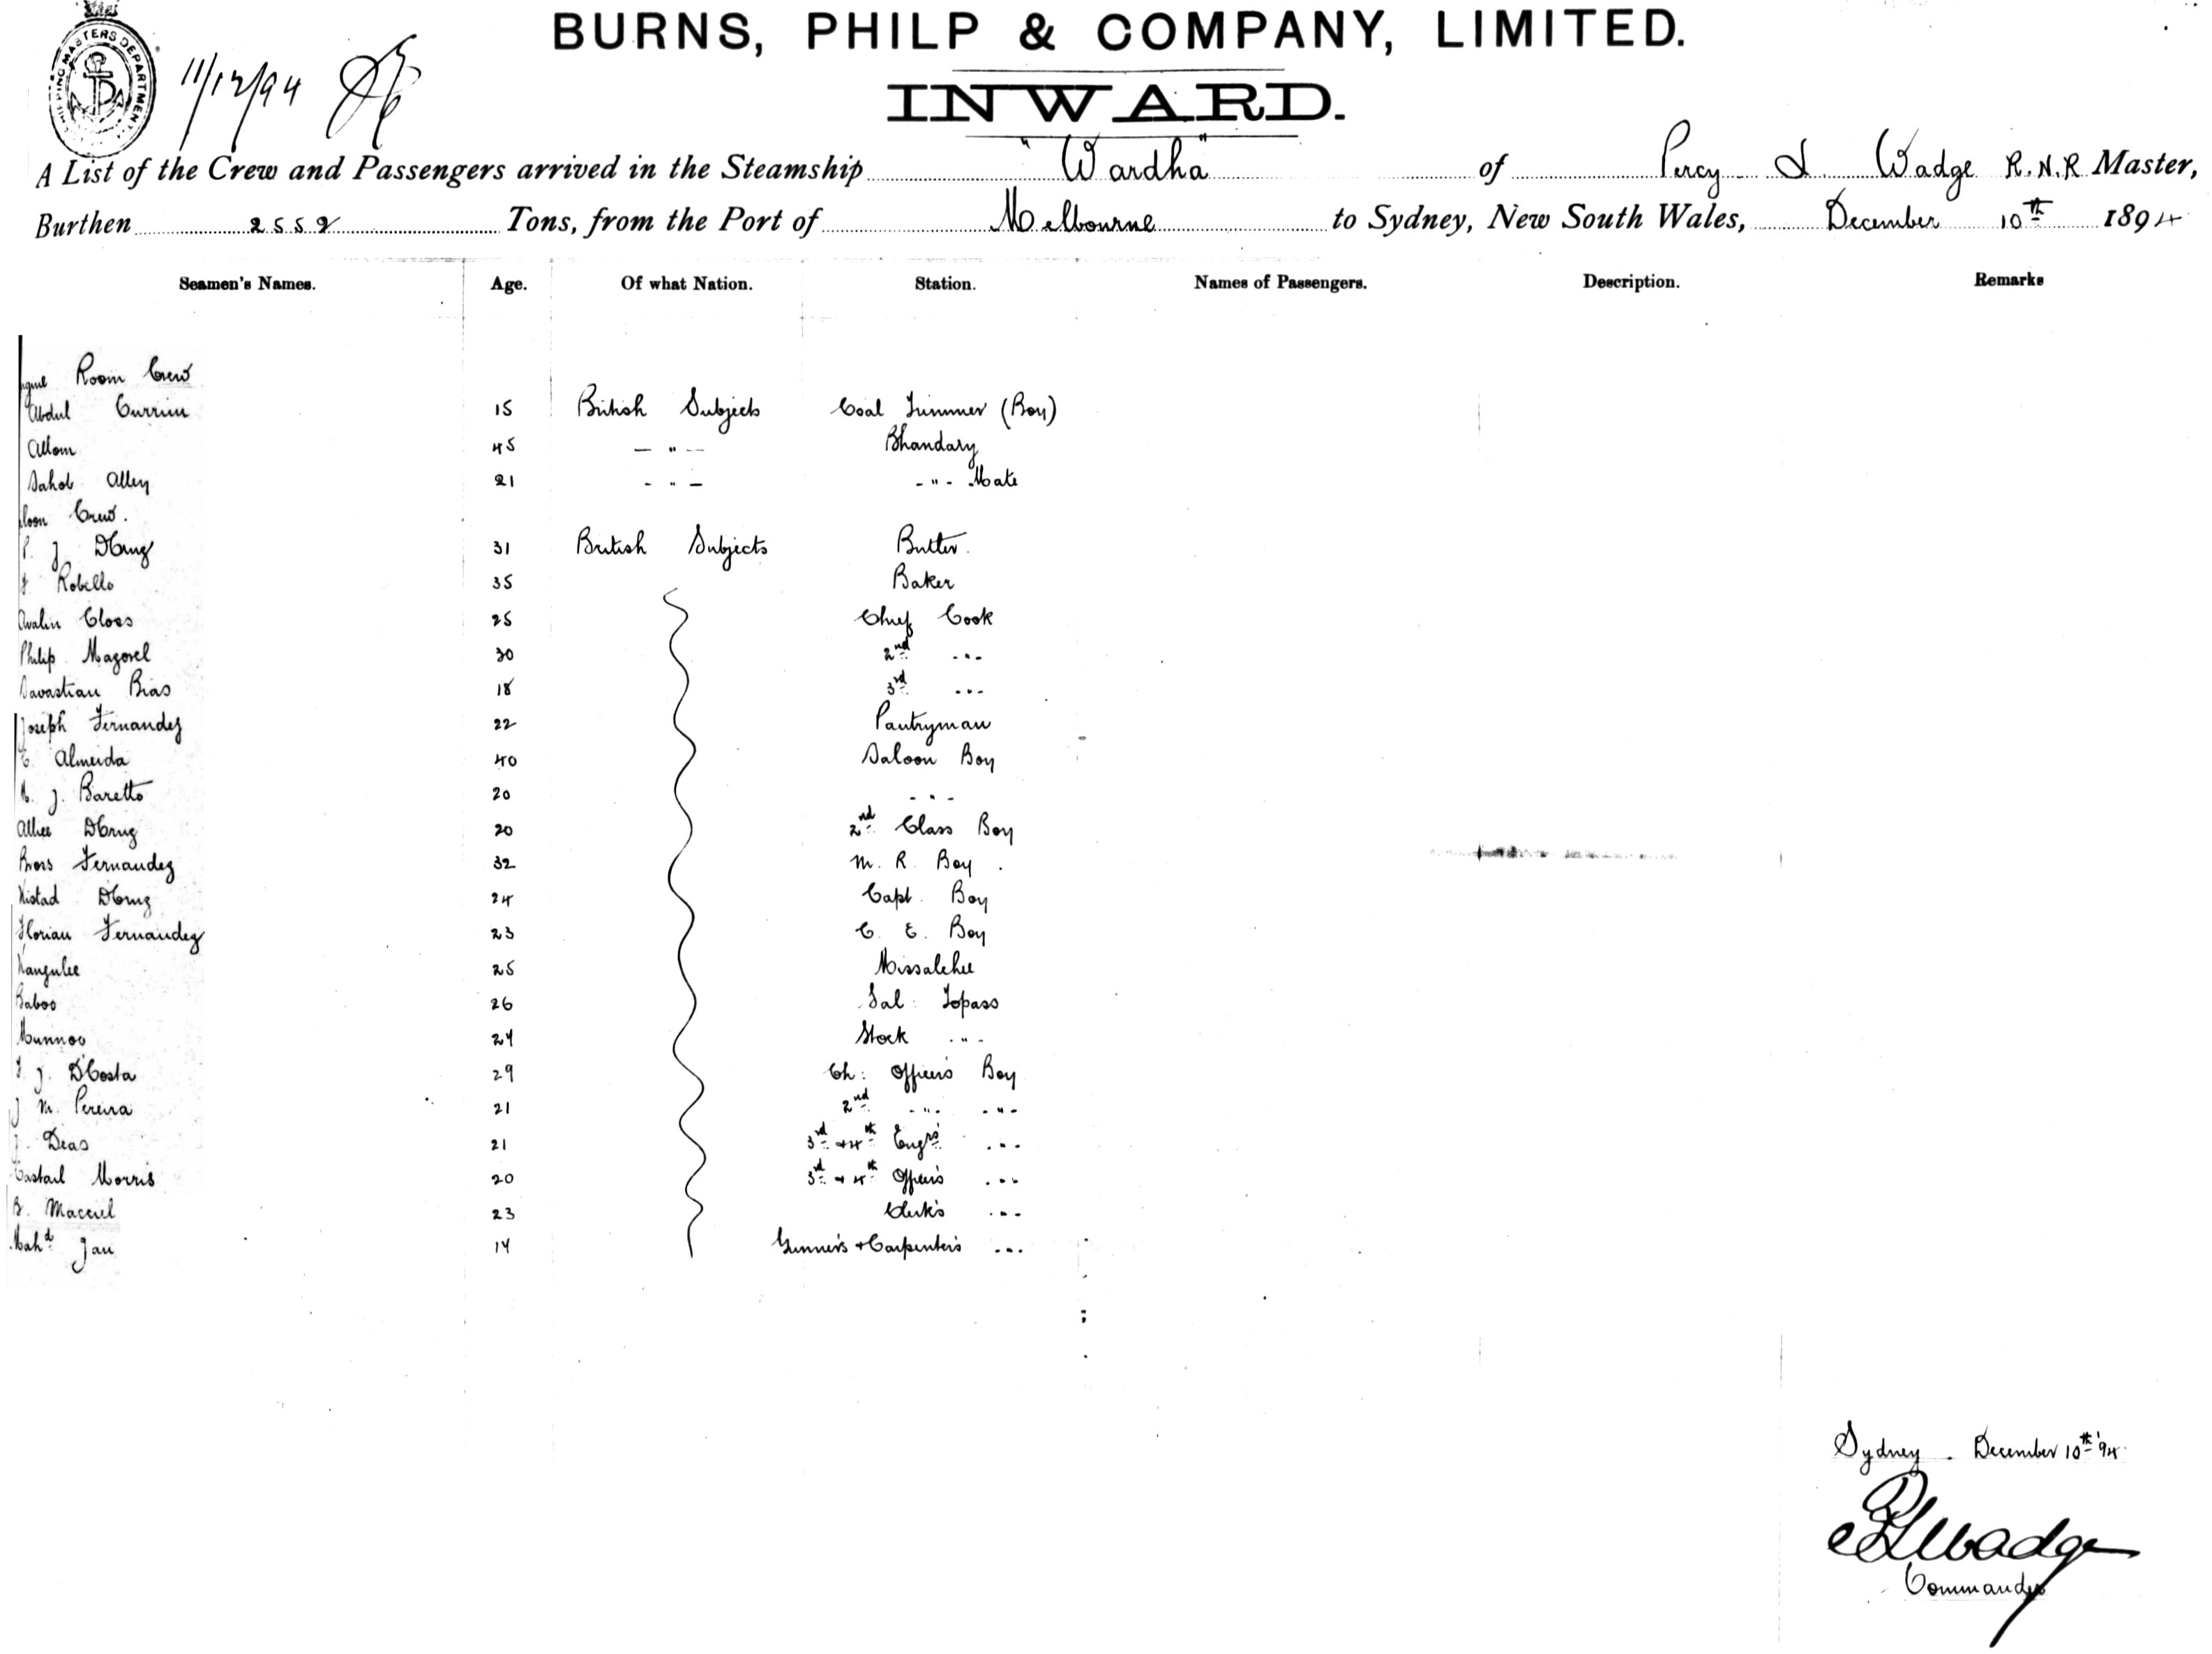 BURNS, PHILP & COMPANY, LIMITED.
SHIPPING MASTERS DEPARTMENT
11/12/94
INWARD.
A List of the Crew and Passengers arrived in the Steamship "Wardha" of Percy L Wadge R.N.R Master,
Burthen 2552 Tons, from the Port of Melbourne to Sydney, New South Wales, December 10th 1894
Seamen's Names. Age. Of what Nation. Station. Names of Passengers. Description. Remarks
Room Crew
Abdul Currim 15 British Subjects Coal Trimmer (Boy)
Allom 45 — " — Bhandary
Sahob Alley 21 - " - - " - Mate
Crew.
P. J DCruz 31 British Subjects Butler.
Robello 35 Baker
Avalin Cloos 25 Chief Cook
Philip Mazorel 30 2nd - " -
Savastian Bias 18 3rd - " -
Joseph Fernandez 22 Pantryman
C. Almeida 40 Saloon Boy
J. Baretto 20 - " -
Allice DCruz 20 2nd Class Boy
Bross Fernandez 32 M. R. Boy.
Kistad DCruz 24 Capt. Boy
Florian Fernandez 23 C. E. Boy
Kangulee 25 Missalchee
Baboo 26 Sal: Topass
Munnoo 24 Stock - " -
J. D'Costa 29 Ch: Officer's Boy
J M. Pereira 21 2nd - " - - " -
J. Deas 21 3rd + 4th Engrs' - " -
Castail Morris 20 3rd + 4th Officers - " -
B. Macciel 23 Clerk's - " -
Mahd Jan 14 Gunner's + Carpenter's - " -
Sydney. December 10th '94
P L Wadge
Commander